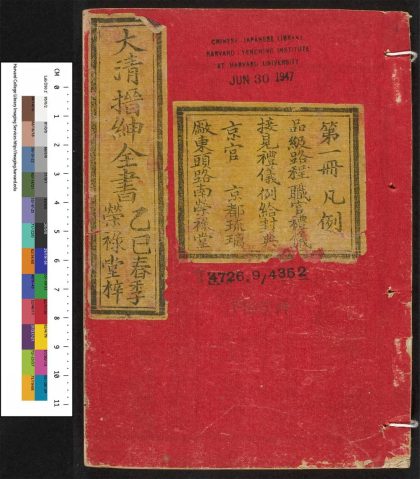 大清搢紳全書
乙巳春季
榮祿堂梓
CHINESE JAPANESE LIBRARY
HARVARD YENCHING INSTITUTE
AT HARVARD UNIVERSITY
JUN 30 1947
第一冊凡例
品級路程 職官禮儀
接見禮儀 例給封典
京官 京都琉璃
廠東頭路南榮祿堂
4726.9/4362
CM
0
1
2
3
4
5
6
7
8
9
10
11
Harvard College Library Imaging Services